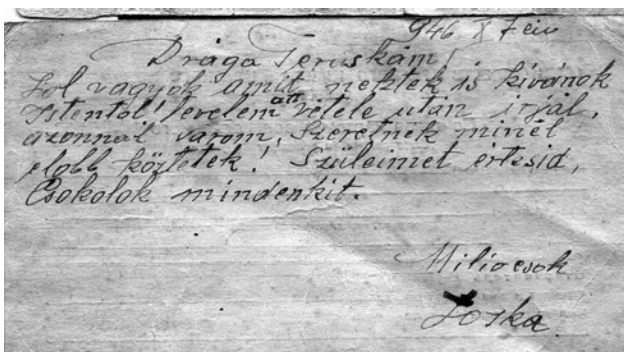 946 X 7 én
Drága Teruskám!
Jol vagyok amit nektek is kivánok
Istentöl! levelem átt vétele után irjál,
azonnal várom, Szeretnék minél
elobb köztetek! Szüleimet értesid,
Csokolok mindenkit.
Milio csok
Joska